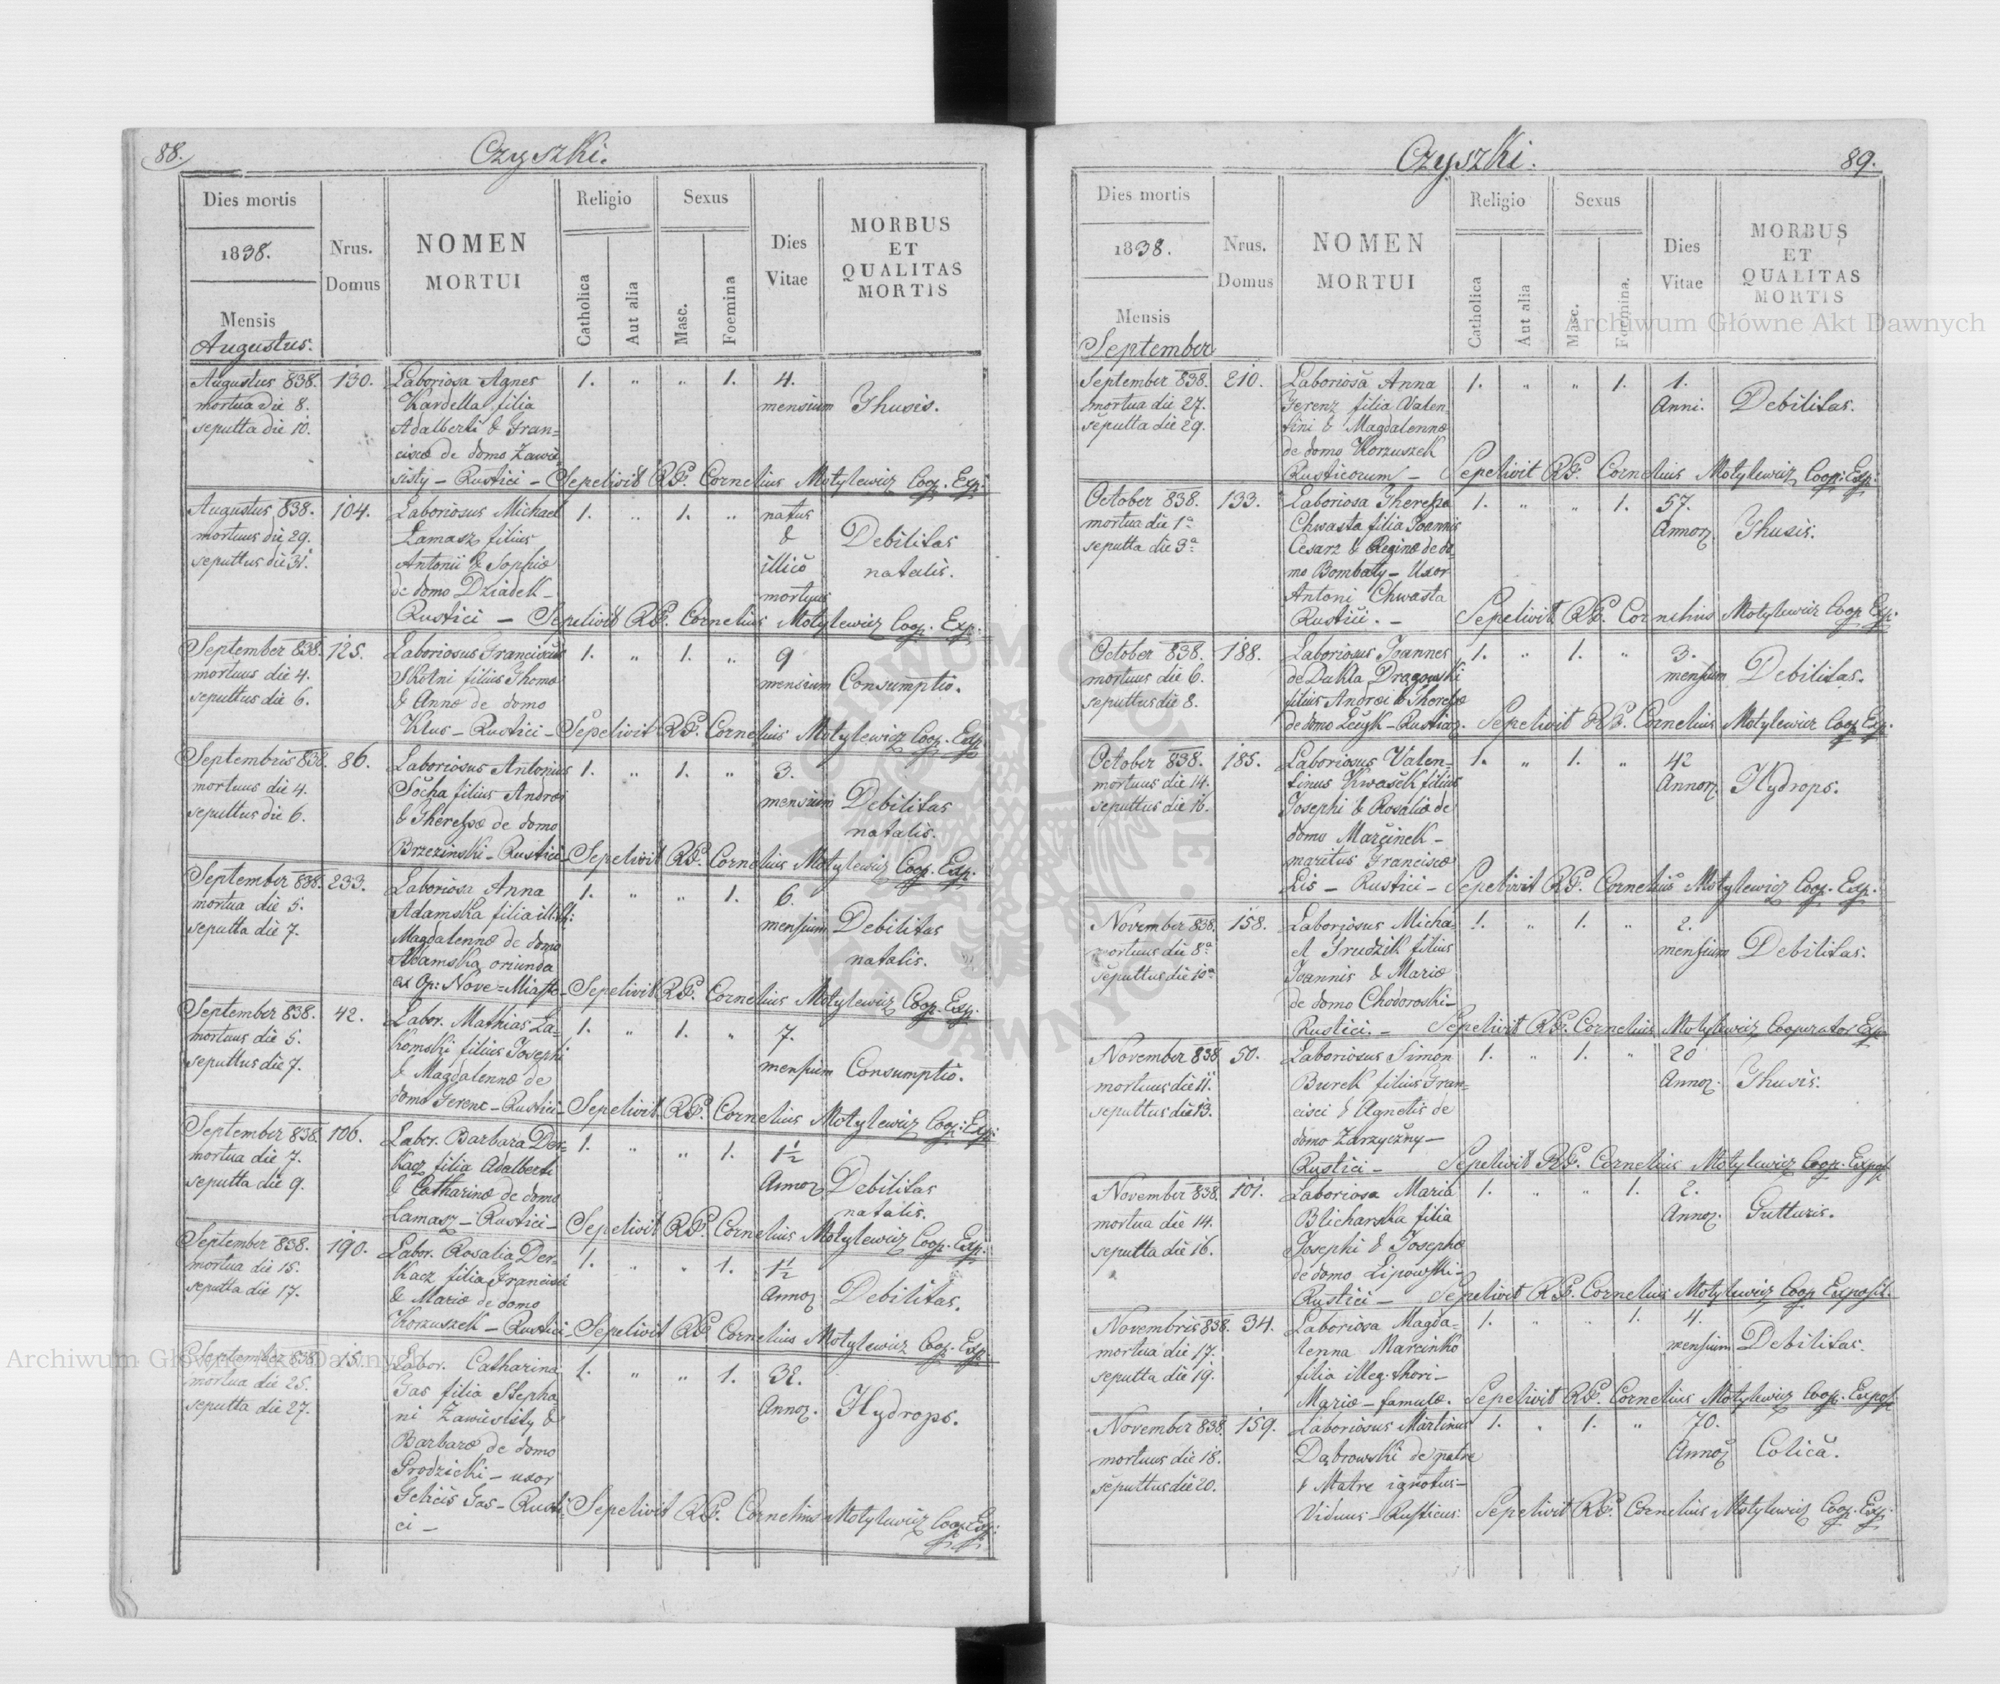 88.
Czyszki.
Dies mortis
1838.
Mensis
Augustus.
Nrus.
Domus
NOMEN
MORTUI
Religio
Catholica
Aut alia
Sexus
Masc.
Foemina
Dies
Vitae
MORBUS
ET
QUALITAS
MORTIS
Augustus 838. 130. Laboriosa Agnes 1. " " 1. 4.
mortua die 8. Kardella filia mensium Thusis.
sepulta die 10. Adalberti & Fran=
ciscæ de domo Zawie
sisty - Rustici - Sepelivit RP. Cornelius Motylewicz Coop. Exp:
Augustus 838. 104. Laboriosus Michael 1. " 1. " natus
mortuus die 29. Łamasz filius & Debilitas
sepultus die 31. Antonii & Sophiæ illico natalis.
de domo Dziadek - mortuus
Rustici - Sepelivit RP. Cornelius Motylewicz Coop. Exp:
September 838. 125. Laboriosus Franciscus 1. " 1. " 9
mortuus die 4. Skotni filius Thomæ mensium Consumptio.
sepultus die 6. & Annæ de domo
Klus - Rustici - Sepelivit RP. Cornelius Motylewicz Coop. Exp:
Septembris 838. 86. Laboriosus Antonius 1. " 1. " 3.
mortuus die 4. Socha filius Andreæ mensium Debilitas
sepultus die 6. & Theresæ de domo natalis.
Brzezinski - Rustici - Sepelivit RP. Cornelius Motylewicz Coop. Exp.
September 838. 233. Laboriosa Anna 1. " " 1. 6.
mortua die 5. Adamska filia illeg: mensium Debilitas
sepulta die 7. Magdalennæ de domo natalis.
Adamska oriunda
ex Op: Nove=Miasto - Sepelivit RP. Cornelius Motylewicz Coop. Exp.
September 838. 42. Labor. Mathias La= 1. " 1. " 7.
mortuus die 5. komski filius Josephi mensium Consumptio.
sepultus die 7. & Magdalennæ de
domo Ferenc - Rustici - Sepelivit RP. Cornelius Motylewicz Coop: Exp:
September 838. 106. Labor. Barbara Der= 1. " " 1. 1½
mortua die 7. kacz filia Adalberti Annor. Debilitas
sepulta die 9. & Catharinæ de domo natalis.
Łamasz - Rustici - Sepelivit RP. Cornelius Motylewicz Coop. Exp:
September 838. 190. Labor. Rosalia Der= 1. " " 1. 1½
mortua die 15. kacz filia Francisci Annor. Debilitas.
sepulta die 17. & Mariæ de domo
Korzuszek - Rustici - Sepelivit RP. Cornelius Motylewicz Coop. Exp:
September 838. 15. Labor. Catharina 1. " " 1.
mortua die 25. Gas filia Stepha Annor. Hydrops.
sepulta die 27. ni Zawiesisty &
Barbaræ de domo
Prodzicki - uxor
Felicis Gas - Rusti Sepelivit RP. Cornelius Motylewicz Coop. Exp:
ci -
Czyszki.
89.
Dies mortis
1838.
Mensis
September
Nrus.
Domus
NOMEN
MORTUI
Religio
Catholica
Aut alia
Sexus
Masc.
Foemina.
Dies
Vitae
MORBUS
ET
QUALITAS
MORTIS
September 838. 210. Laboriosa Anna 1. " " 1. 1.
mortua die 27. Ferenz filia Valen= Anni. Debilitas.
sepulta die 29. tini & Magdalennæ
de domo Korzuszek
Rusticorum - Sepelivit RP. Cornelius Motylewicz Coop: Exp:
October 838. 133. Laboriosa Theresa 1. " " 1. 57.
mortua die 1a Chwasta filia Joannis Annor. Thusis.
sepulta die 3a. Cesarz & Reginæ de do
mo Bombaty - Uxor
Antoni Chwasta
Rustici. - Sepelivit RP. Cornelius Motylewicz Coop Exp:
October 838. 188. Laboriosus Joannes 1. " 1. " 3.
mortuus die 6. de Dukla Dragowski mensium Debilitas.
sepultus die 8. filius Andreæ & Theresæ
de domo Lecyk - Rusticor. Sepelivit RP. Cornelius Motylewicz Coop Exp:
October 838. 185. Laboriosus Valen= 1. " 1. " 42
mortuus die 14. tinus Kwasek filius Annor. Hydrops.
sepultus die 16. Josephi & Rosaliæ de
domo Marcinek -
maritus Franciscæ
Lis - Rustici - Sepelivit RP. Cornelius Motylewicz Coop. Exp:
November 838. 158. Laboriosus Micha= 1. " 1. " 2.
mortuus die 8a el Srudzik filius mensium Debilitas.
sepultus die 10a Joannis & Mariæ
de domo Chodoroski -
Rustici. - Sepelivit RP. Cornelius Motylewicz Cooperator Exp
November 838 50. Laboriosus Simon 1. " 1. " 20
mortuus die 11. Burek filius Fran= Annor. Thusis.
sepultus die 13. cisci & Agnetis de
domo Zarzyczny -
Rustici - Sepelivit RP. Cornelius Motylewicz Coop. Expos.
November 838. 101. Laboriosa Maria 1. " " 1. 2.
mortua die 14. Blicharska filia Annor. Gutturis.
sepulta die 16. Josephi & Josephæ
de domo Lipowski -
Rustici - Sepelivit RP. Cornelius Motylewicz Coop Exposit.
Novembris 838. 34. Laboriosa Magda= 1. " " 1. 4.
mortua die 17. lenna Marcinko mensium Debilitas.
sepulta die 19. filia illeg. thori -
Mariæ - famulæ. Sepelivit RP. Cornelius Motylewicz Coop. Expos.
November 838. 159. Laboriosus Martinus 1. " 1. " 70.
mortuus die 18. Dąbrowski de patre Annor Colica.
sepultus die 20. & Matre ignotus -
Viduus - Rusticus: Sepelivit RP. Cornelius Motylewicz Coop. Exp:
Archiwum Główne Akt Dawnych
Archiwum Główne Akt Dawnych
ARCHIWUM GŁÓWNE
AKT DAWNYCH